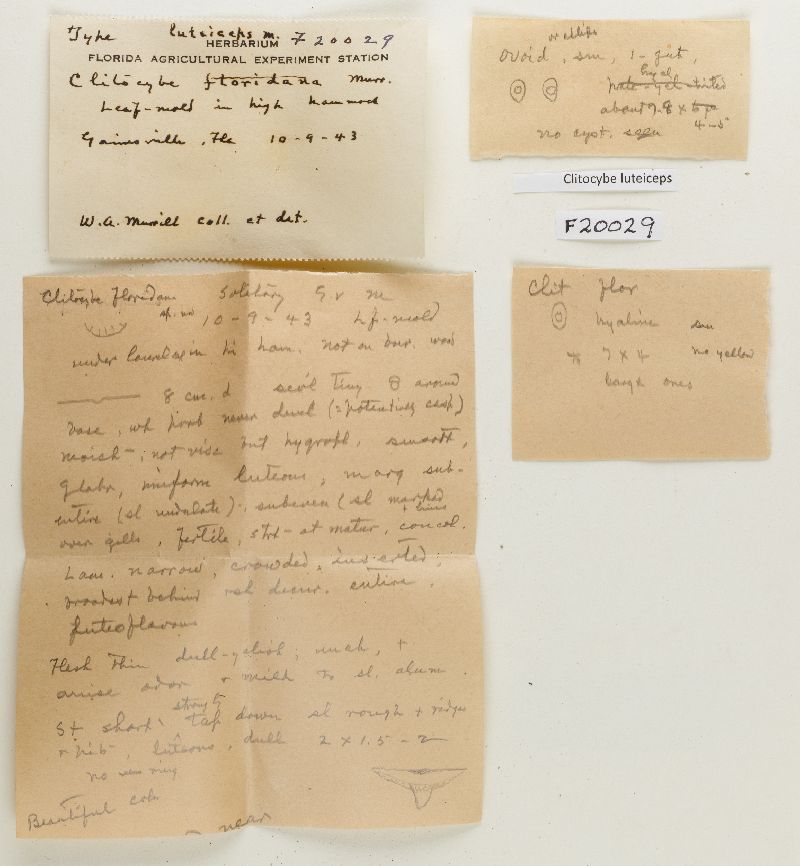 Type luteiceps m. F20029
HERBARIUM
FLORIDA AGRICULTURAL EXPERIMENT STATION
Clitocybe floridana Murr.
Leaf-mold in high hammock
Gainesville, Fla 10-9-43
W.A. Murrill coll. et det.
or ellips
ovoid, sm, 1-gut,
hyal
about 7-8 x
4-5
no cyst. seen
Clitocybe luteiceps
F20029
Clit flor
hyaline sm
7 x 4 no yellow
large ones
Clitocybe floridana Solitary
10-9-43 lf-mold
under in hi ham. not on bur. wood
8 cm. d tiny around
base, wh never devel
moist; not visc but hygroph, smooth,
glabr, uniform luteous, marg sub-
entire (sl undulate), subeven (sl marked
over gills, fertile, at matur, concol.
Lam. narrow, crowded, inserted,
broadest behind decur. entire,
luteoflavous
Flesh thin dull-yelish; unch, +
anise odor + mild to sl. alum
strongly
St short, tap down sl rough + ridges
luteous, dull 2 x 1.5-2
no ring
Beautiful col.
near